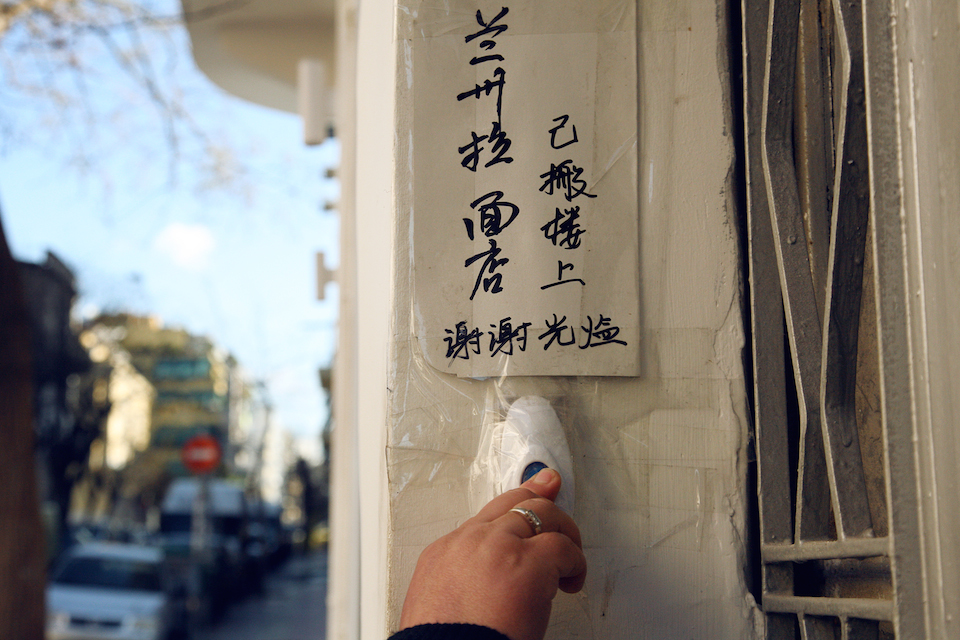 兰州拉面店
己搬楼上
谢谢光